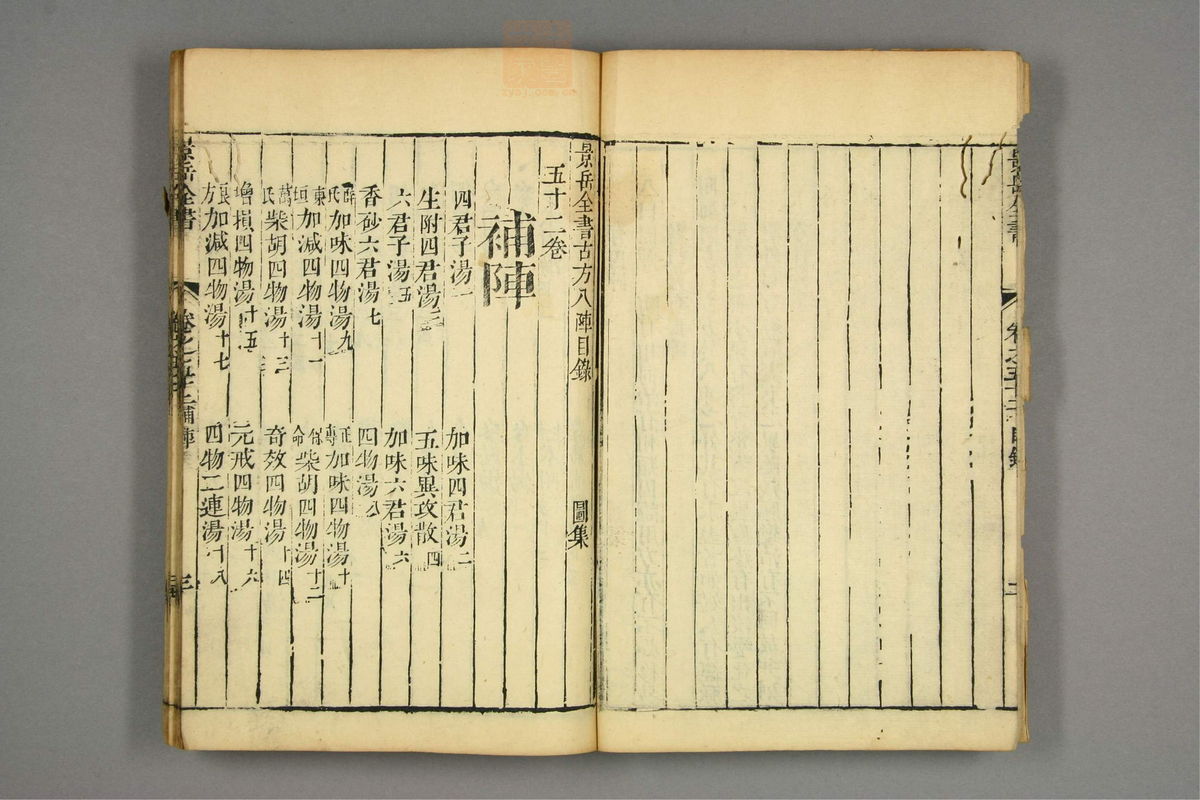 景岳全書 卷之五十二 目錄
景岳全書古方八陣目錄 圖集
五十二卷
補陣
四君子湯一 加味四君湯二
生附四君湯三 五味異攻散四
六君子湯五 加味六君湯六
香砂六君湯七 四物湯八
薛氏加味四物湯九 正傳加味四物湯十
東垣加減四物湯十一 保命柴胡四物湯十二
萬氏柴胡四物湯十三 奇效四物湯十四
增損四物湯十五 元戎四物湯十六
良方加減四物湯十七 四物二連湯十八
景岳全書 卷之五十二補陣